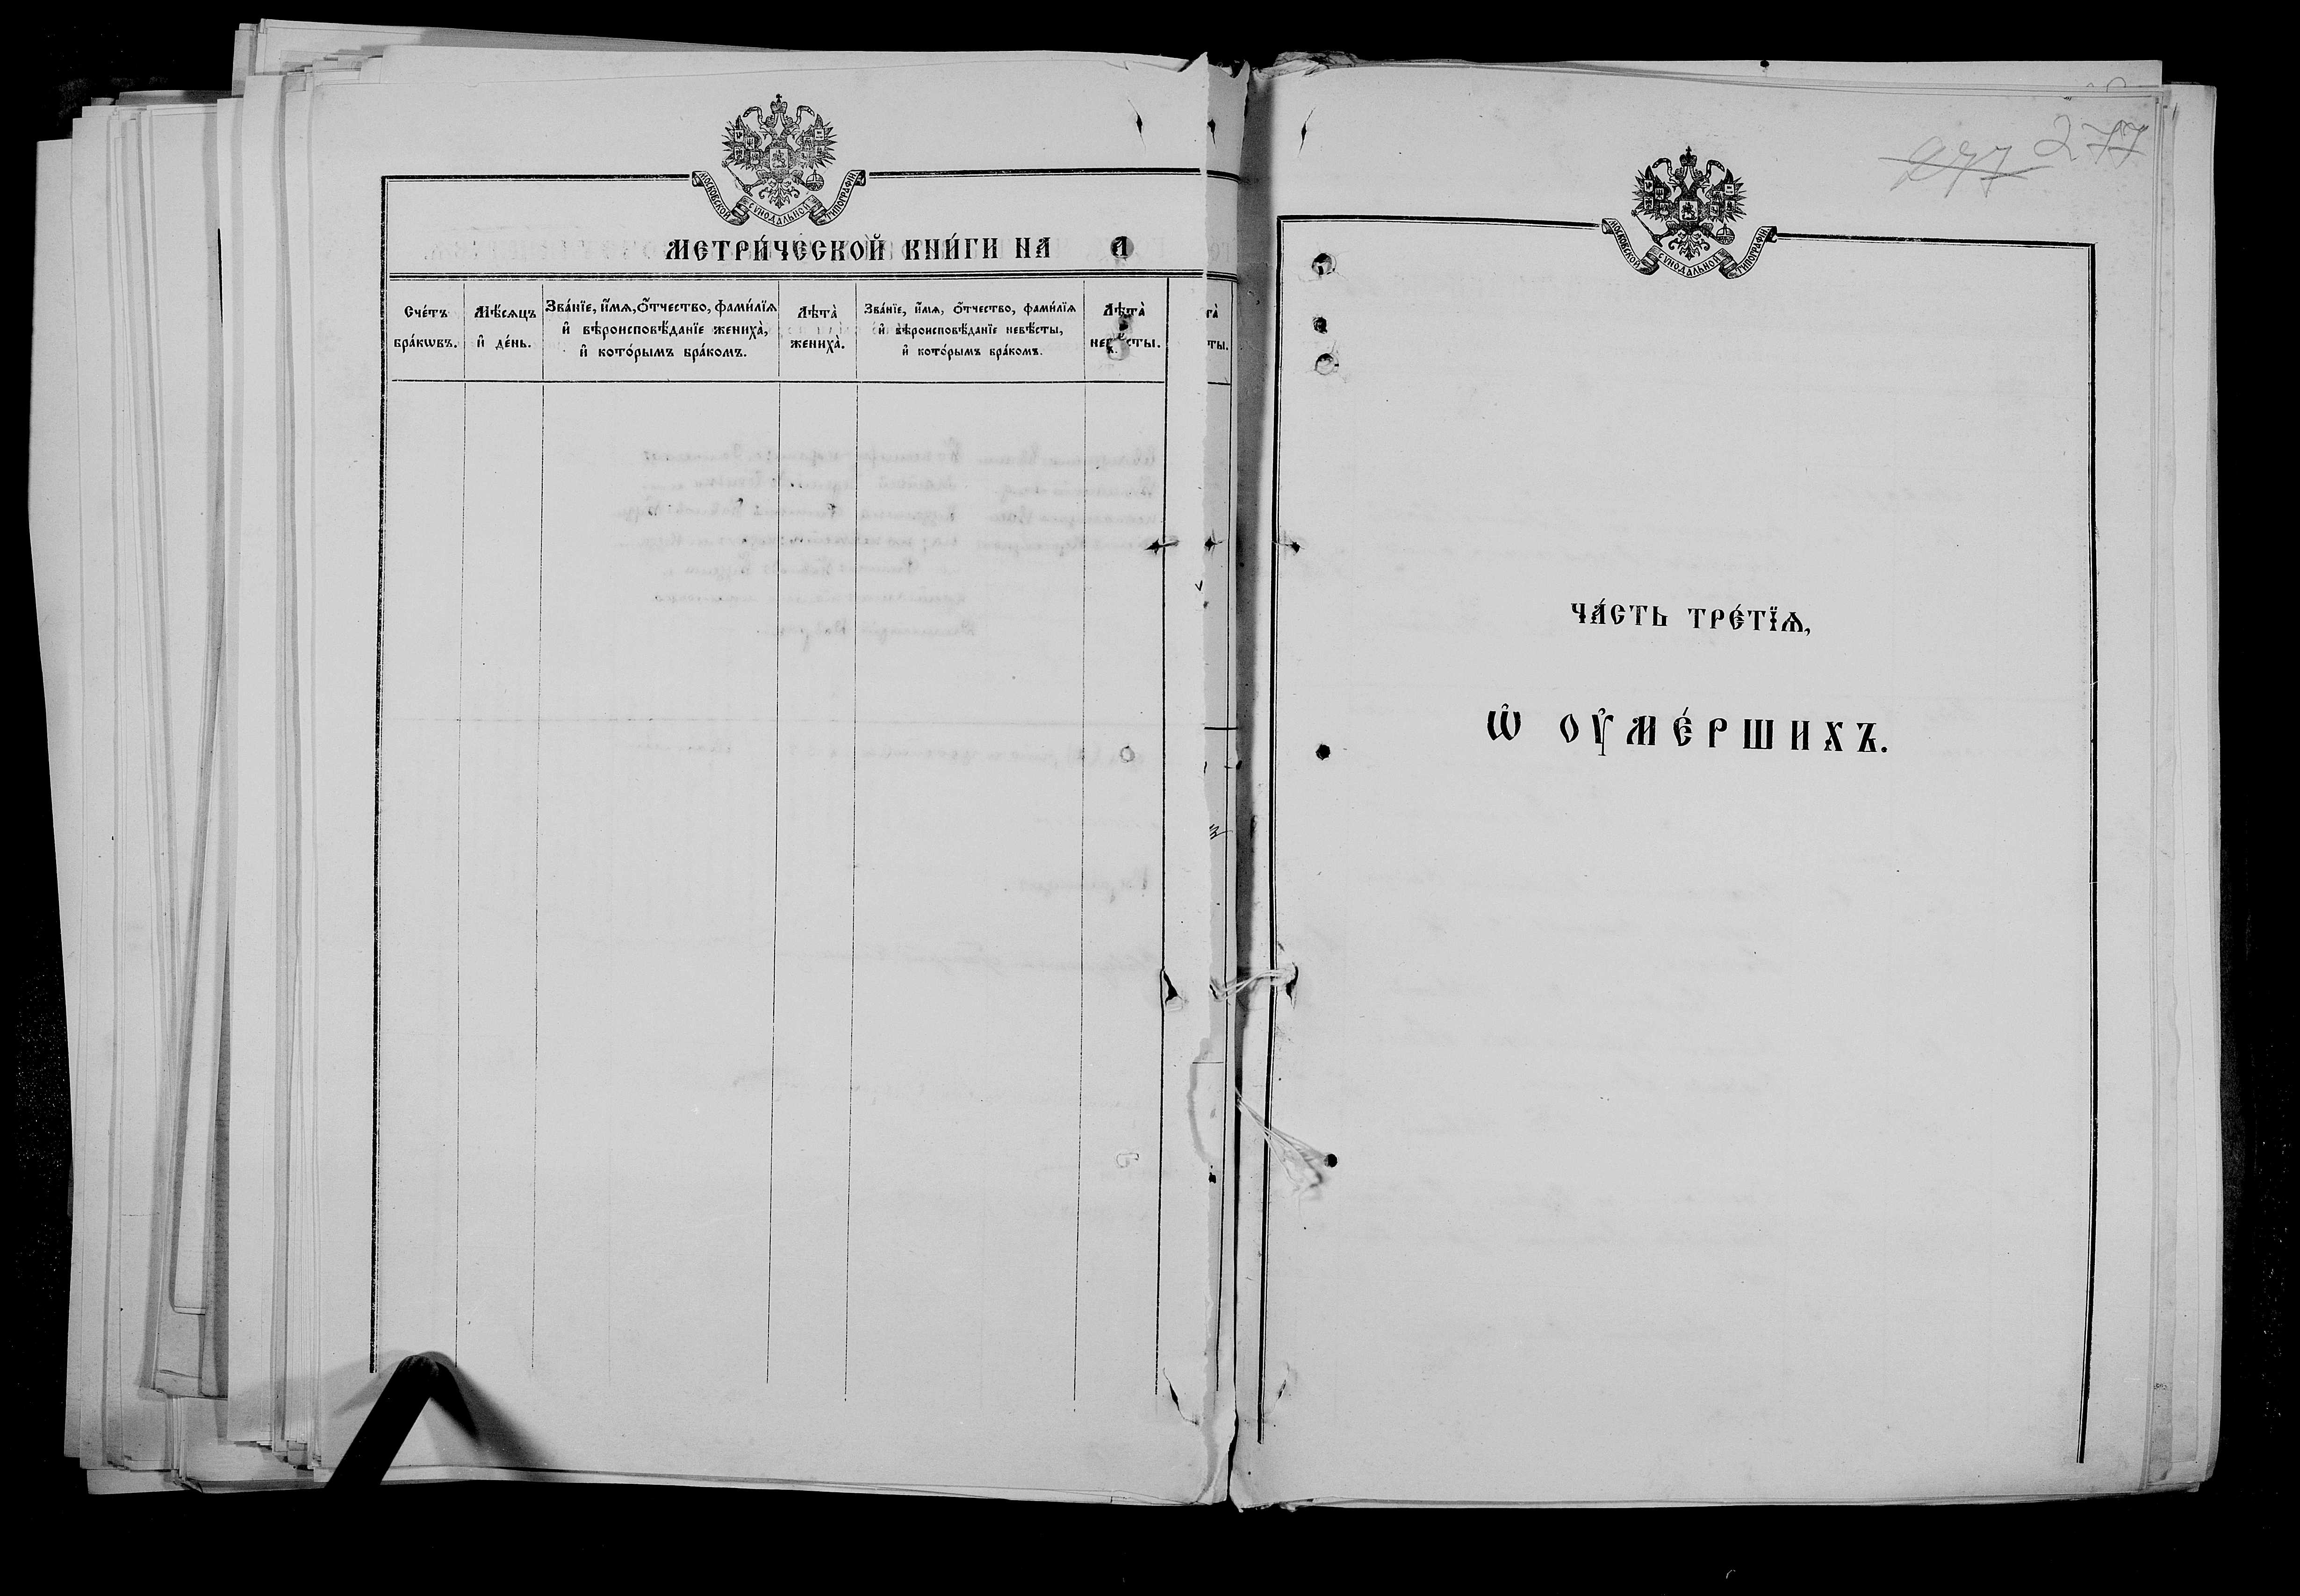 МОСКОВСКОЙ СѴНОДАЛЬНОЙ ТИПОГРАФІИ
МЕТРИ́ЧЕСКОЙ КНИ́ГИ НА а҃
Сче́тъ
бра́кѡвъ.
Мѣ́сѧцъ
и҆ де́нь.
Зва́нїе, и҆́мѧ, ѻ҆́тчество, фами́лїѧ
и҆ вѣроисповѣ́данїе жениха̀,
и҆ кото́рымъ бра́комъ.
Лѣта̀
жениха̀.
Зва́нїе, и҆́мѧ, ѻ҆́тчество, фами́лїѧ
и҆ вѣроисповѣ́данїе невѣ́сты,
и҆ кото́рымъ бра́комъ.
Лѣта̀
невѣ́сты.
та̀
ты.
277 277
МОСКОВСКОЙ СѴНОДАЛЬНОЙ ТИПОГРАФІИ
ЧА́СТЬ ТРЕ́ТЇѦ,
Ѡ҆ ОУ҆МЕ́РШИХЪ.